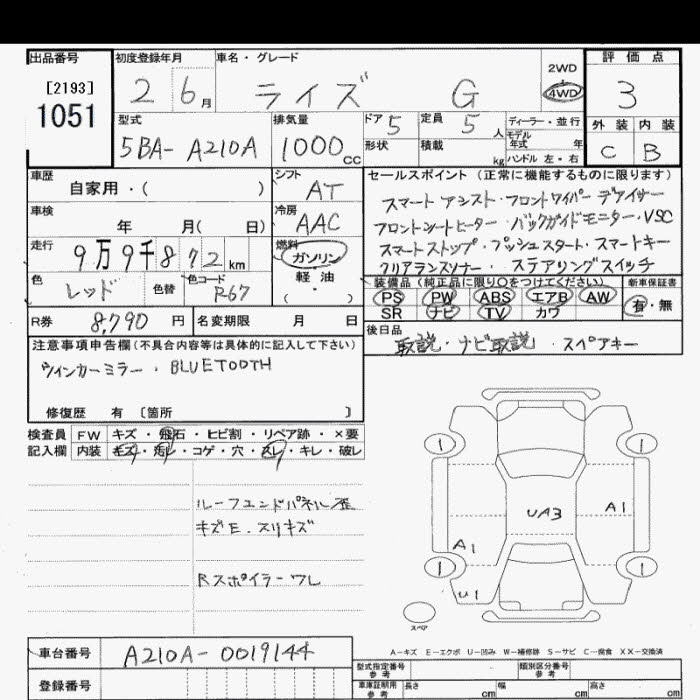 出品番号
[2193]
1051
初度登録年月
2 6月
車名・グレード
ライズ G
2WD
4WD
評価点
3
外装 内装
C B
型式
5BA- A210A
排気量
1000cc
ドア 5
形状
定員 5 人
積載 kg
ディーラー・並行
モデル年式 年
ハンドル 左・右
車歴
自家用・( )
シフト
AT
車検
年 月( 日)
冷房
AAC
走行
9万9千872km
燃料
ガソリン
軽油
・( )
色
レッド
色替
色コード
R67
R券 8,790 円
名変期限 月 日
セールスポイント(正常に機能するものに限ります)
スマートアシスト・フロントワイパーデアイサー
フロントシートヒーター・バックガイドモニター・VSC
スマートストップ・プッシュスタート・スマートキー
クリアランスソナー・ステアリングスイッチ
装備品(純正品に限り○をつけてください)
PS PW ABS エアB AW
SR ナビ TV カワ
新車保証書
有・無
後日品
取説・ナビ取説・スペアキー
注意事項申告欄(不具合内容等は具体的に記入して下さい)
ウインカーミラー・BLUETOOTH
修復歴 有 [箇所 ]
検査員記入欄
FW キズ・飛石・ヒビ割・リペア跡・×要
内装 キズ・汚レ・コゲ・穴・スレ・キレ・破レ
ルーフエンドパネル歪
キズE.スリキズ
Rスポイラーワレ
UA3
A1
A1
U1
スペア
A-キズ E-エクボ U-凹み W-補修跡 S-サビ C-腐食 XX-交換済
車台番号 A210A-0019144
登録番号
型式指定番号 参考
類別区分番号 参考
車庫証明用 参考
長さ cm 幅 cm 高さ cm